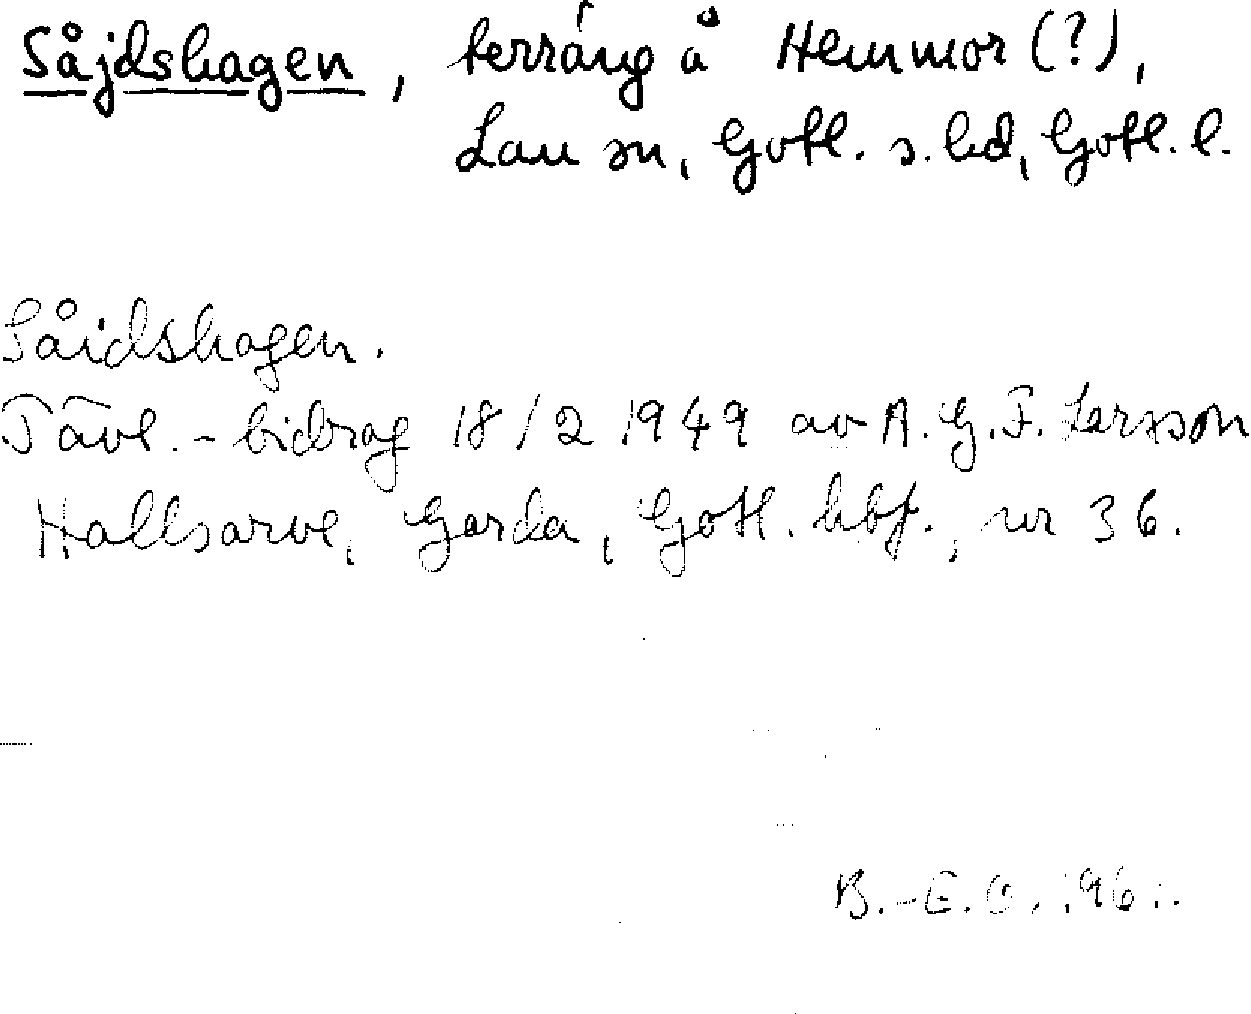 Såjdshagen, terräng å Hemmor (?),
Lau sn, Gotl. s. hd, Gotl. l.
Såidshagen.
Tävl.-bidrag 18/2 1949 av A.G.F. Larsson
Hallsarve, Garda, Gotl. hbf., nr 36.
B.-E.O. 1961.